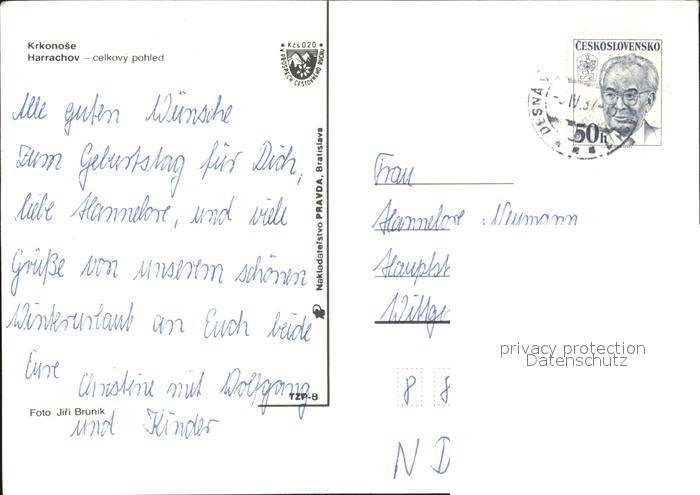 Krkonoše
Harrachov – celkový pohled
Kčs 020
V PROSPECH CESTOVNÉHO RUCHU
Alle guten Wünsche
zum Geburtstag für Dich,
liebe Hannelore, und viele
Grüße von unserem schönen
Winterurlaub an Euch beide
Eure
Christine mit Wolfgang
und Kinder
Foto Jiří Bruník
TZP-8
Nakladateľstvo PRAVDA, Bratislava
ČESKOSLOVENSKO
50h
DESNÁ
IV.87
Frau
Hannelore Neumann
Hauptst
Wittge
privacy protection
Datenschutz
8 8
N D